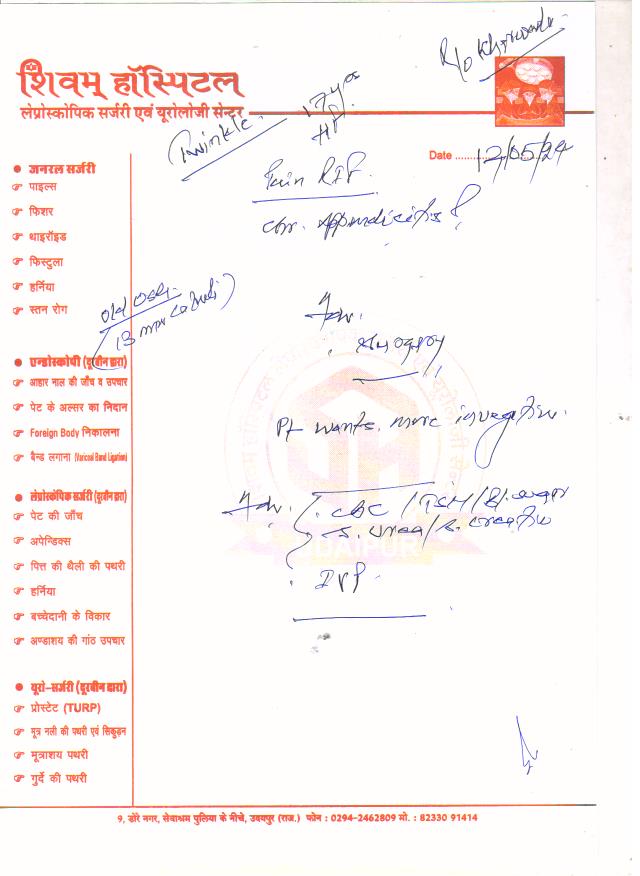 R/o Kherwada
शिवम् हॉस्पिटल
लेप्रोस्कोपिक सर्जरी एवं यूरोलोजी सेन्टर
Twinkle. 17 yrs
Date 12/05/24
Pain RIF.
chr. Appendicitis ?
● जनरल सर्जरी
☞ पाइल्स
☞ फिशर
☞ थाइरॉइड
☞ फिस्टुला
☞ हर्निया
☞ स्तन रोग
old
Adv.
Surgery
● एन्डोस्कोपी (दूरबीन द्वारा)
☞ आहार नाल की जाँच व उपचार
☞ पेट के अल्सर का निदान
☞ Foreign Body निकालना
☞ बैन्ड लगाना (Variceal Band Ligation)
Pt wants. more
● लेप्रोस्कोपिक सर्जरी (दूरबीन द्वारा)
☞ पेट की जाँच
☞ अपेन्डिक्स
☞ पित्त की थैली की पथरी
☞ हर्निया
☞ बच्चेदानी के विकार
☞ अण्डाशय की गांठ उपचार
Adv. CBC / TSH / Bl. sugar
S. urea / S. creatin
UDAIPUR
IVP.
● यूरो-सर्जरी (दूरबीन द्वारा)
☞ प्रोस्टेट (TURP)
☞ मूत्र नली की पथरी एवं सिकुड़न
☞ मूत्राशय पथरी
☞ गुर्दे की पथरी
9, डोरे नगर, सेवाश्रम पुलिया के नीचे, उदयपुर (राज.) फोन : 0294-2462809 मो. : 82330 91414